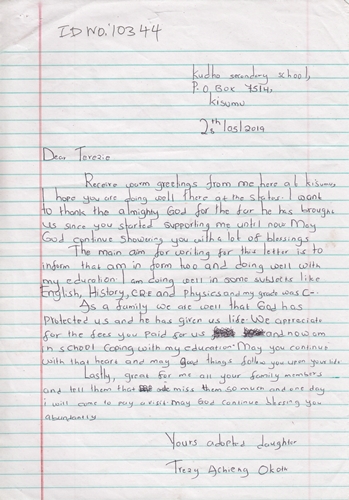 ID NO: 10344
Kudho secondary school,
P.O BOX 7514,
Kisumu
28th/05/2019
Dear Terezie
Receive warm greetings from me here at kisumu
I hope you are doing well there at the states. I want
to thank the almighty God for the far he has brought
us since you started supporting me until now May
God continue showering you with a lot of blessings
The main aim for writing for this letter is to
inform that am in form two and doing well with
my education I am doing well in some subjects like
English, History, CRE and Physics and my grade was C-
As a family we are well that God has
Protected us and he has given us life. We appreciate
for the fees you Paid for us and now am
in school coping with my education. May you continue
with that heart and may good things follow you upon your life
Lastly, great for me all your family members
and tell them that miss them so much and one day
i will come to pay a visit may God continue blessing you
abundantly
Yours adopted daughter
Trezy Achieng Okoth